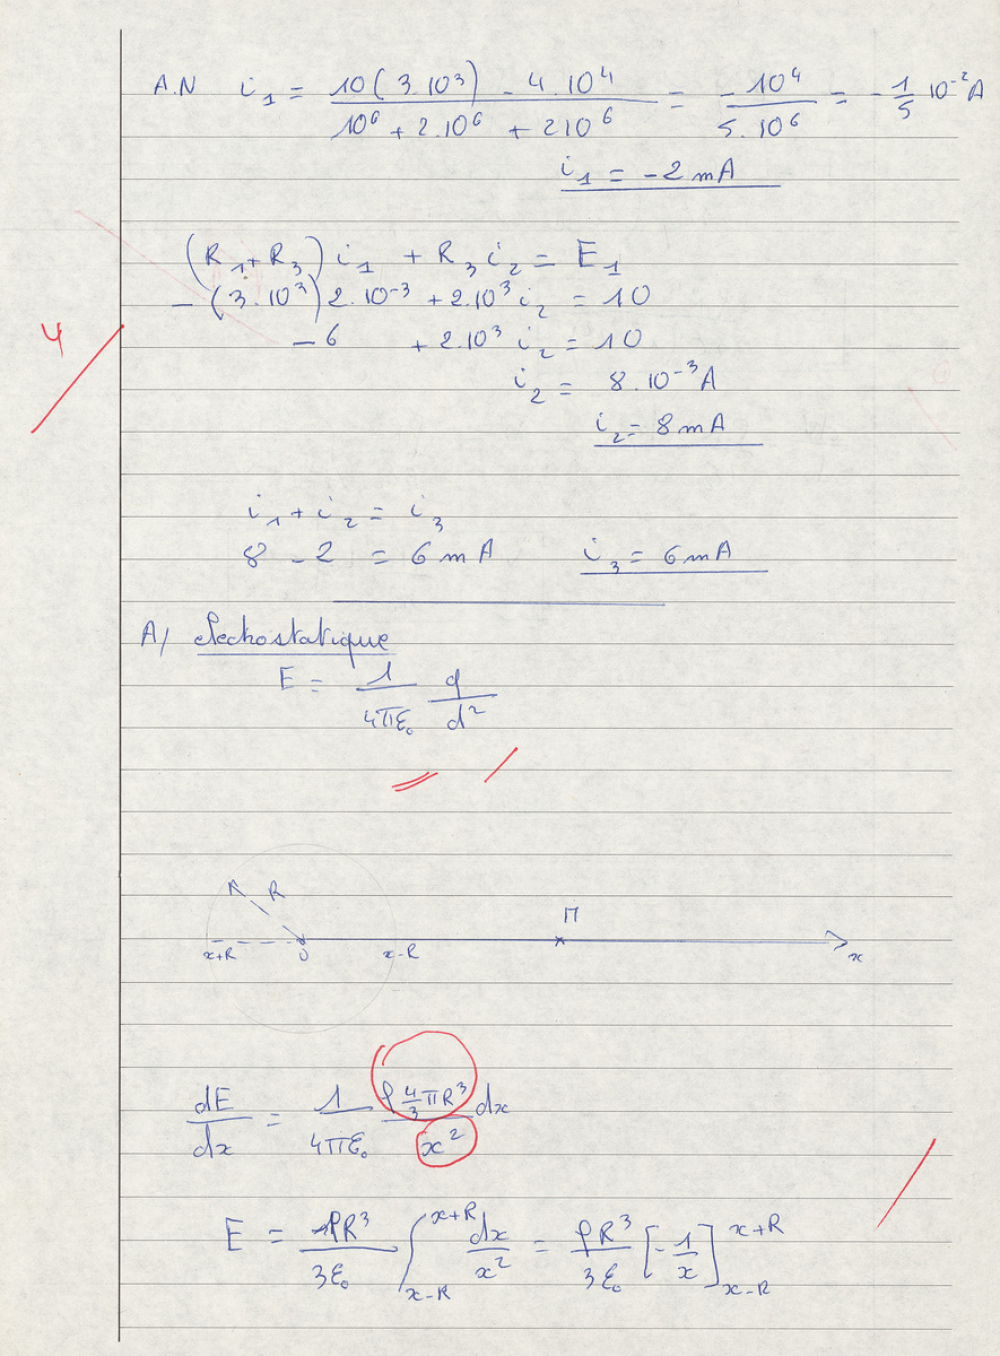 A.N i₁ = (10(3.10³) - 4.10⁴) / (10⁶ + 2.10⁶ + 2 10⁶) = - 10⁴ / 5.10⁶ = - 1/5 10⁻²A
i₁ = -2 mA
(R₁ + R₃) i₁ + R₃ i₂ = E₁
- (3.10³) 2.10⁻³ + 2.10³ i₂ = 10
4
- 6 + 2.10³ i₂ = 10
i₂ = 8.10⁻³A
i₂ = 8 mA
i₁ + i₂ = i₃
8 - 2 = 6 mA i₃ = 6 mA
A/ électrostatique
E = 1/4πε₀ q/d²
R
M
x+R O x-R x
dE/dx = 1/4πε₀ ρ 4/3 πR³/x² dx
E = ρR³/3ε₀ ∫_{x-R}^{x+R} dx/x² = ρR³/3ε₀ [-1/x]_{x-R}^{x+R}